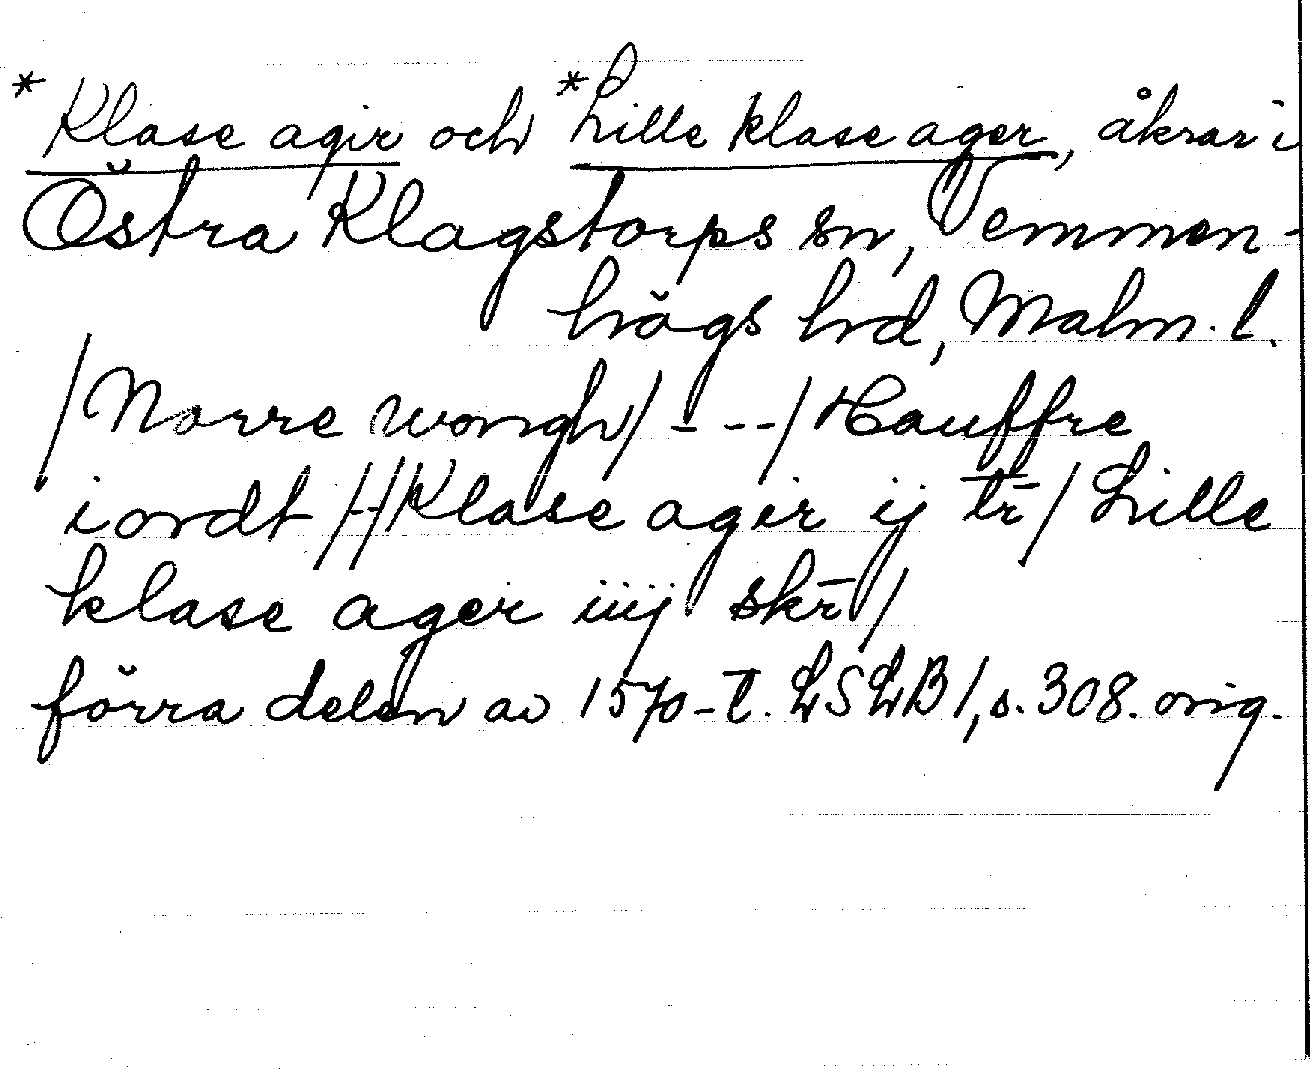 *Klase agir och *Lille klase ager, åkrar i
Östra Klagstorps sn, Vemmen-
högs hrd, Malm. l.
/Norre wongh/ - - -/ Hauffre
iordt /-/ Klase agir ij tr̄ / Lille
klase ager iiij skr̄ /
förra delen av 1570-t. LSLB 1, s. 308. orig.